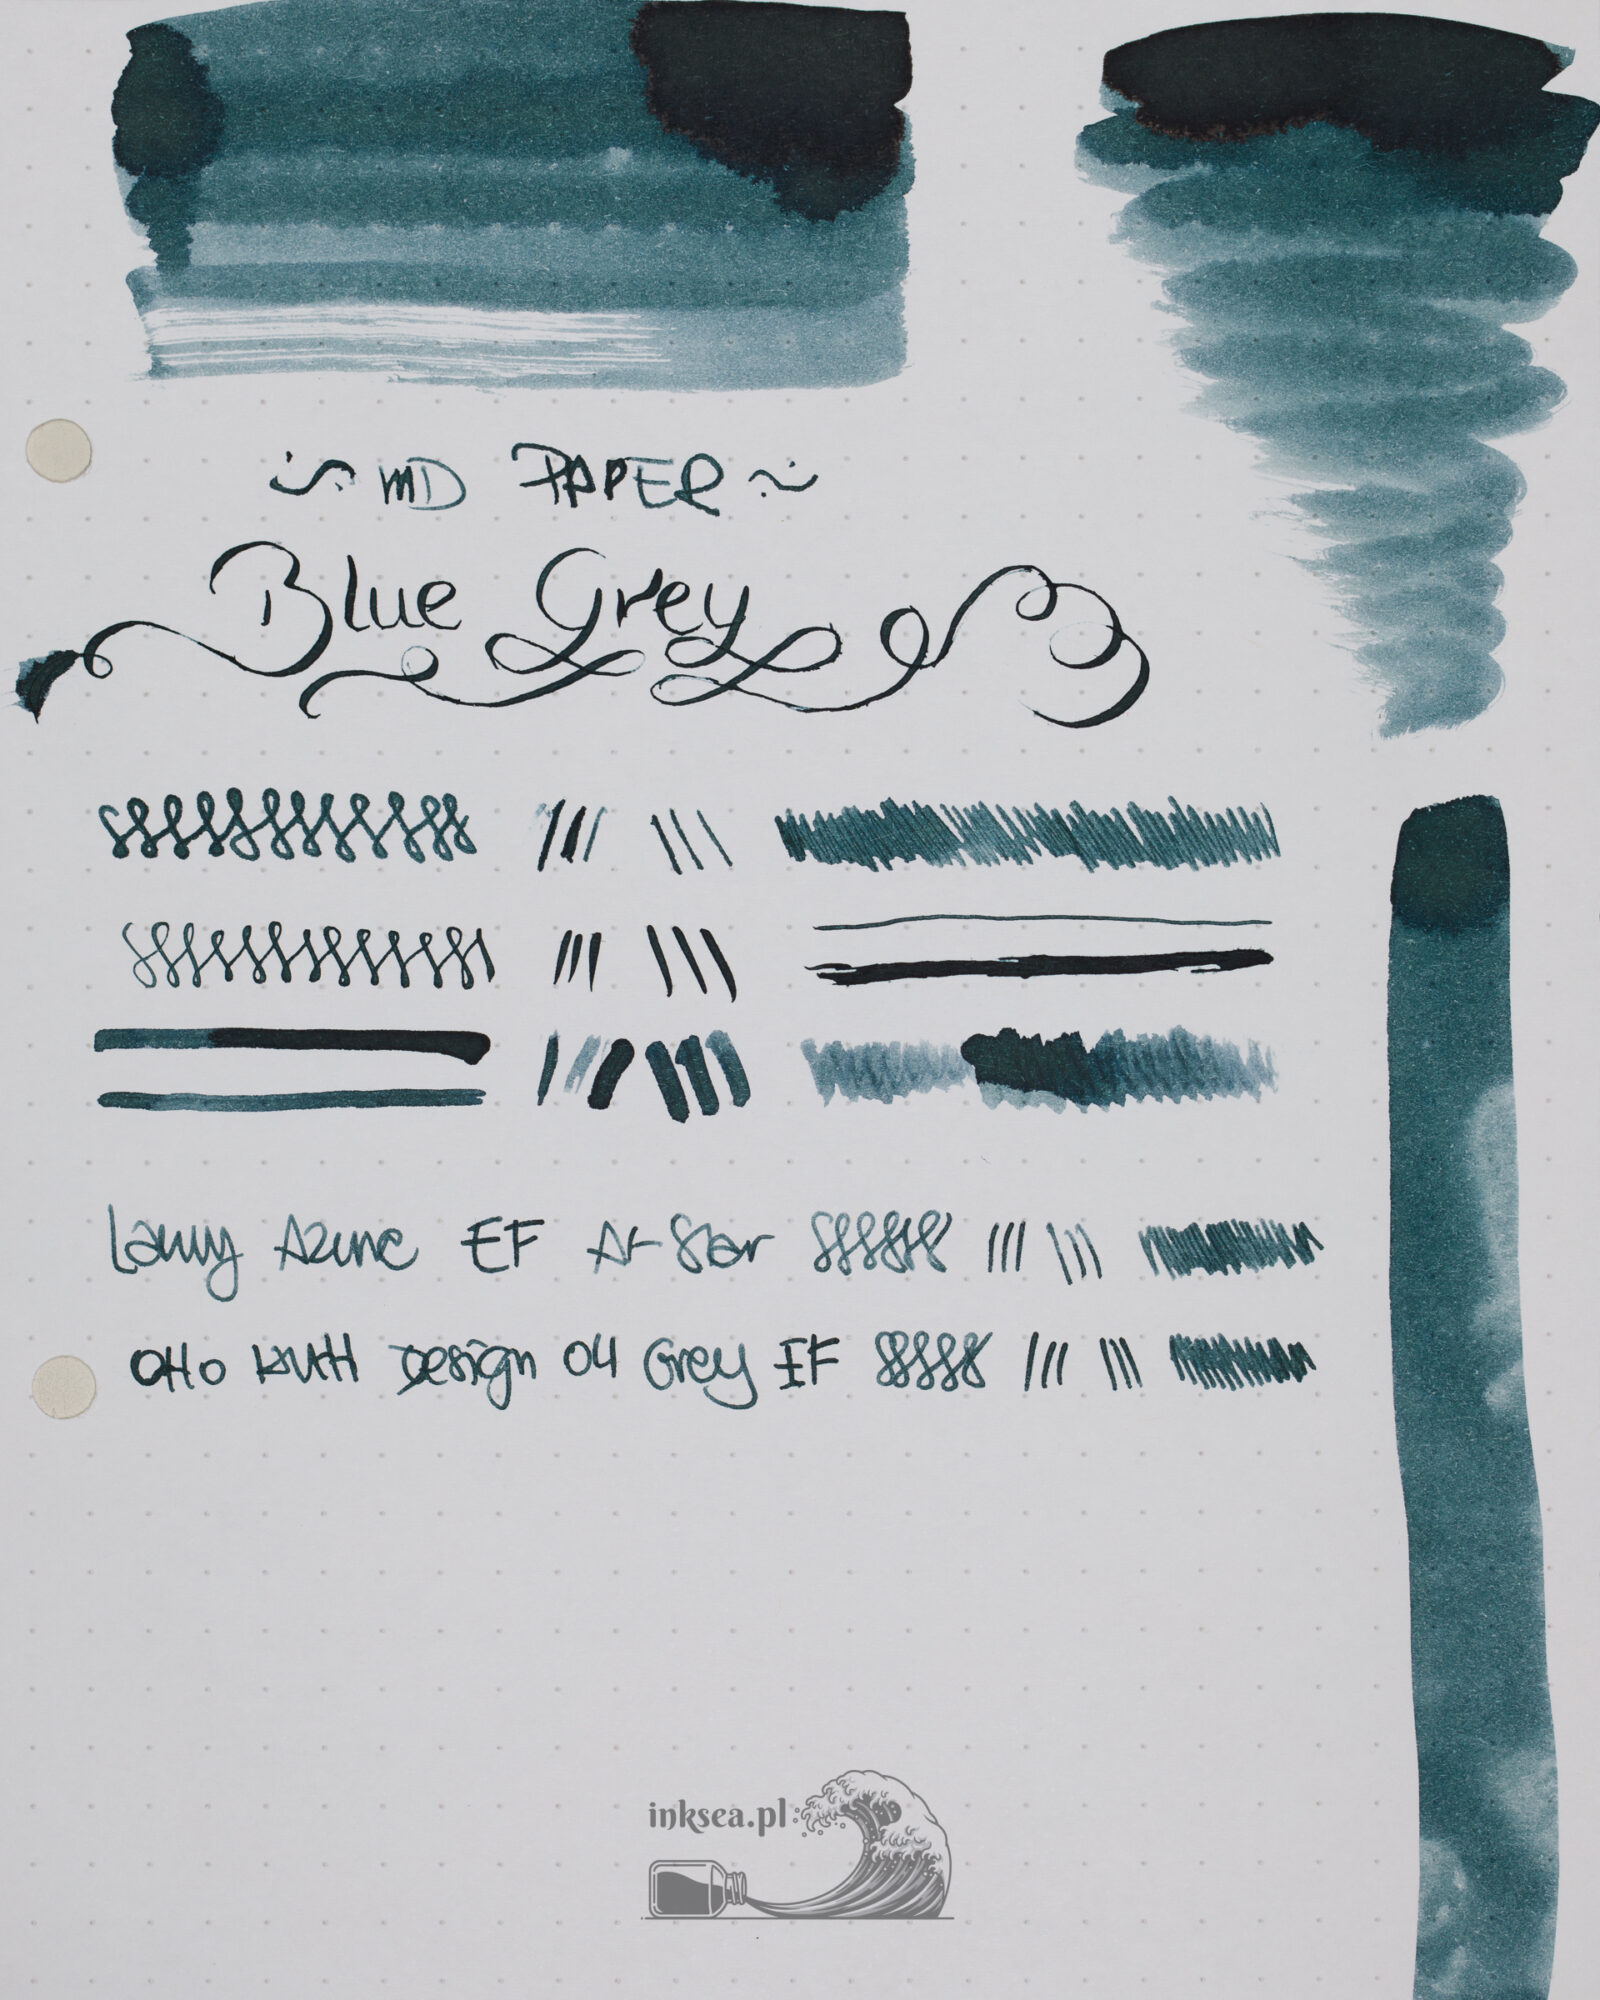 ~ MD PAPER ~
Blue Grey
Lamy Azure EF Al-Star
Otto Hutt Design 04 Grey EF
inksea.pl